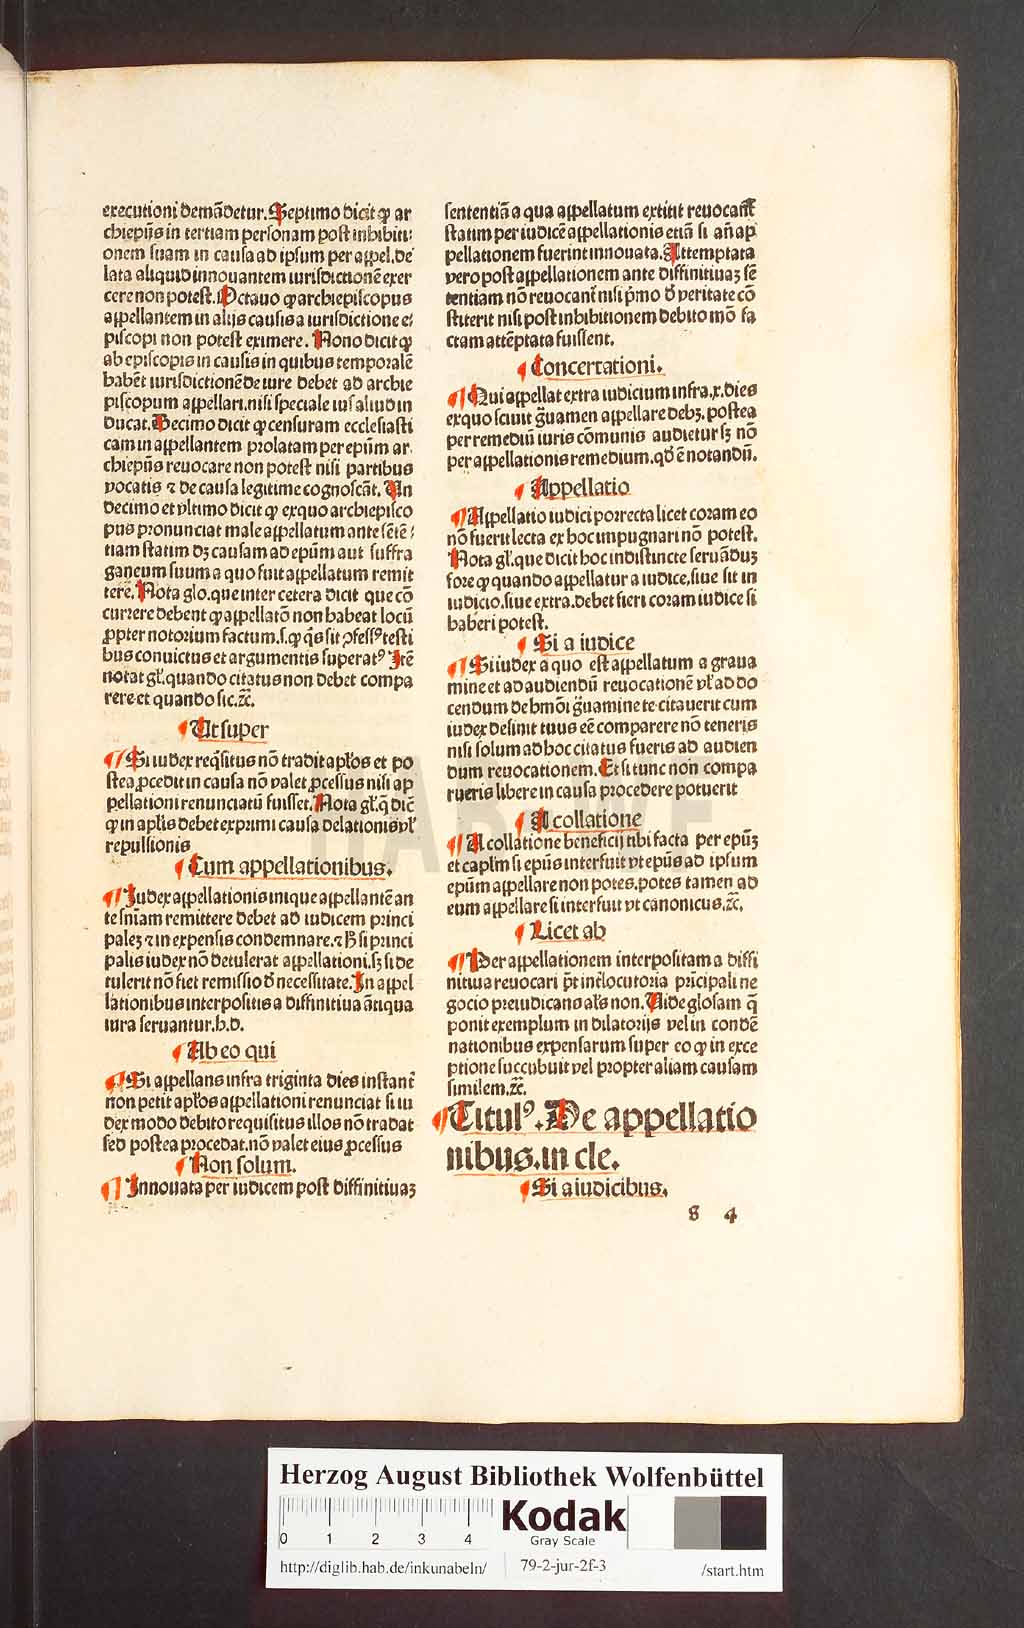 executioni demādetur. Septimo dicit ꝙ ar
chiepūs in tertiam personam post inhibiti⸗
onem suam in causa ad ipsum per appel. de
lata aliquid innouantem iurisdictionē exer
cere non potest. Octauo ꝙ archiepiscopus
appellantem in alijs causis a iurisdictione e⸗
piscopi non potest eximere. Nono dicit ꝙ
ab episcopis in causis in quibus temporalē
habēt iurisdictionē de iure debet ad archie
piscopum appellari. nisi speciale ius aliud in
ducat. Decimo dicit ꝙ censuram ecclesiasti
cam in appellantem prolatam per epūm ar
chiepūs reuocare non potest nisi partibus
vocatis ⁊ de causa legitime cognoscāt. Un
decimo et vltimo dicit ꝙ exquo archiepisco
pus pronunciat male appellatum ante sētē⸗
tiam statim dꝫ causam ad epūm aut suffra
ganeum suum a quo fuit appellatum remit
tere. Nota glo. que inter cetera dicit que cō
currere debent ꝙ appellatō non habeat locū
ꝓpter notorium factum. s. ꝙ q̄s sit ꝓfessꝰ testi
bus conuictus et argumentis superatꝰ Itē
notat gl̄. quando citatus non debet compa
rere et quando sic. ⁊c̄.
Ut super
Si iudex reqͥsitus nō tradit apl̓os et po
stea ꝓcedit in causa nō valet ꝓcessus nisi ap
pellationi renunciatū fuisset. Nota gl̄. q̄ dic̄
ꝙ in apl̓is debet exprimi causa delationis vl̓
repulsionis
Cum appellationibus.
Iudex appellationis inique appellantē an
te sn̄iam remittere debet ad iudicem princi
paleꝫ ⁊ in expensis condemnare. ⁊ ꝑ si princi
palis iudex nō detulerat appellationi. sꝫ si de
tulerit nō fiet remissio d̓ necessitate. In appel
lationibus interpositis a diffinitiua ātiqua
iura seruantur. h. d.
Ab eo qui
Si appellans infra triginta dies instant̄
non petit apl̓os appellationi renunciat si iu
dex modo debito requisitus illos nō tradat
sed postea procedat. nō valet eius ꝓcessus
Non solum.
Innouata per iudicem post diffinitiuaꝫ
sententiā a qua appellatum extitit reuocant̄
statim per iudicē appellationis etiā si an̄ ap
pellationem fuerint innouata. Attemptata
vero post appellationem ante diffinitiuaꝫ sē
tentiam nō reuocant̄ nisi pͥmo d̓ veritate cō
stiterit nisi post inhibitionem debito mō fa
ctam attēptata fuissent.
Concertationi.
Qui appellat extra iudicium infra. x. dies
exquo sciuit gͣuamen appellare debꝫ. postea
per remediū iuris cōmunis audietur sꝫ nō
per appellationis remedium. qd̓ ē notandū.
Appellatio
Appellatio iudici porrecta licet coram eo
nō fuerit lecta ex hoc impugnari nō potest.
Nota gl̄. que dicit hoc indistincte seruāduꝫ
fore ꝙ quando appellatur a iudice. siue sit in
iudicio. siue extra. debet fieri coram iudice si
haberi potest.
Si a iudice
Si iudex a quo est appellatum a graua
mine et ad audiendū reuocationē vl̓ ad do
cendum de hmōi gͣuamine te citauerit cum
iudex desinit tuus eē comparere nō teneris
nisi solum ad hoc citatus fueris ad audien
dum reuocationem. Et si tunc non compa
rueris libere in causa procedere potuerit
A collatione
A collatione beneficij tibi facta per epūꝫ
et capl̓m si epūs interfuit vt epūs ad ipsum
epūm appellare non potes. potes tamen ad
eum appellare si interfuit vt canonicus. ⁊c̄.
Licet ab
Per appellationem interpositam a diffi
nitiua reuocari pn̄t int̓locutoria pͥncipali ne
gocio preiudicans al̓s non. Uide glosam q̄
ponit exemplum in dilatorijs vel in condē
nationibus expensarum super eo ꝙ in exce
ptione succubuit vel propter aliam causam
similem. ⁊c̄.
Titulꝰ. De appellatio
nibus. in cle.
Si a iudicibus.
8 4
HAB-WF
Herzog August Bibliothek Wolfenbüttel
0 1 2 3 4
Kodak
Gray Scale
http://diglib.hab.de/inkunabeln/ 79-2-jur-2f-3 /start.htm